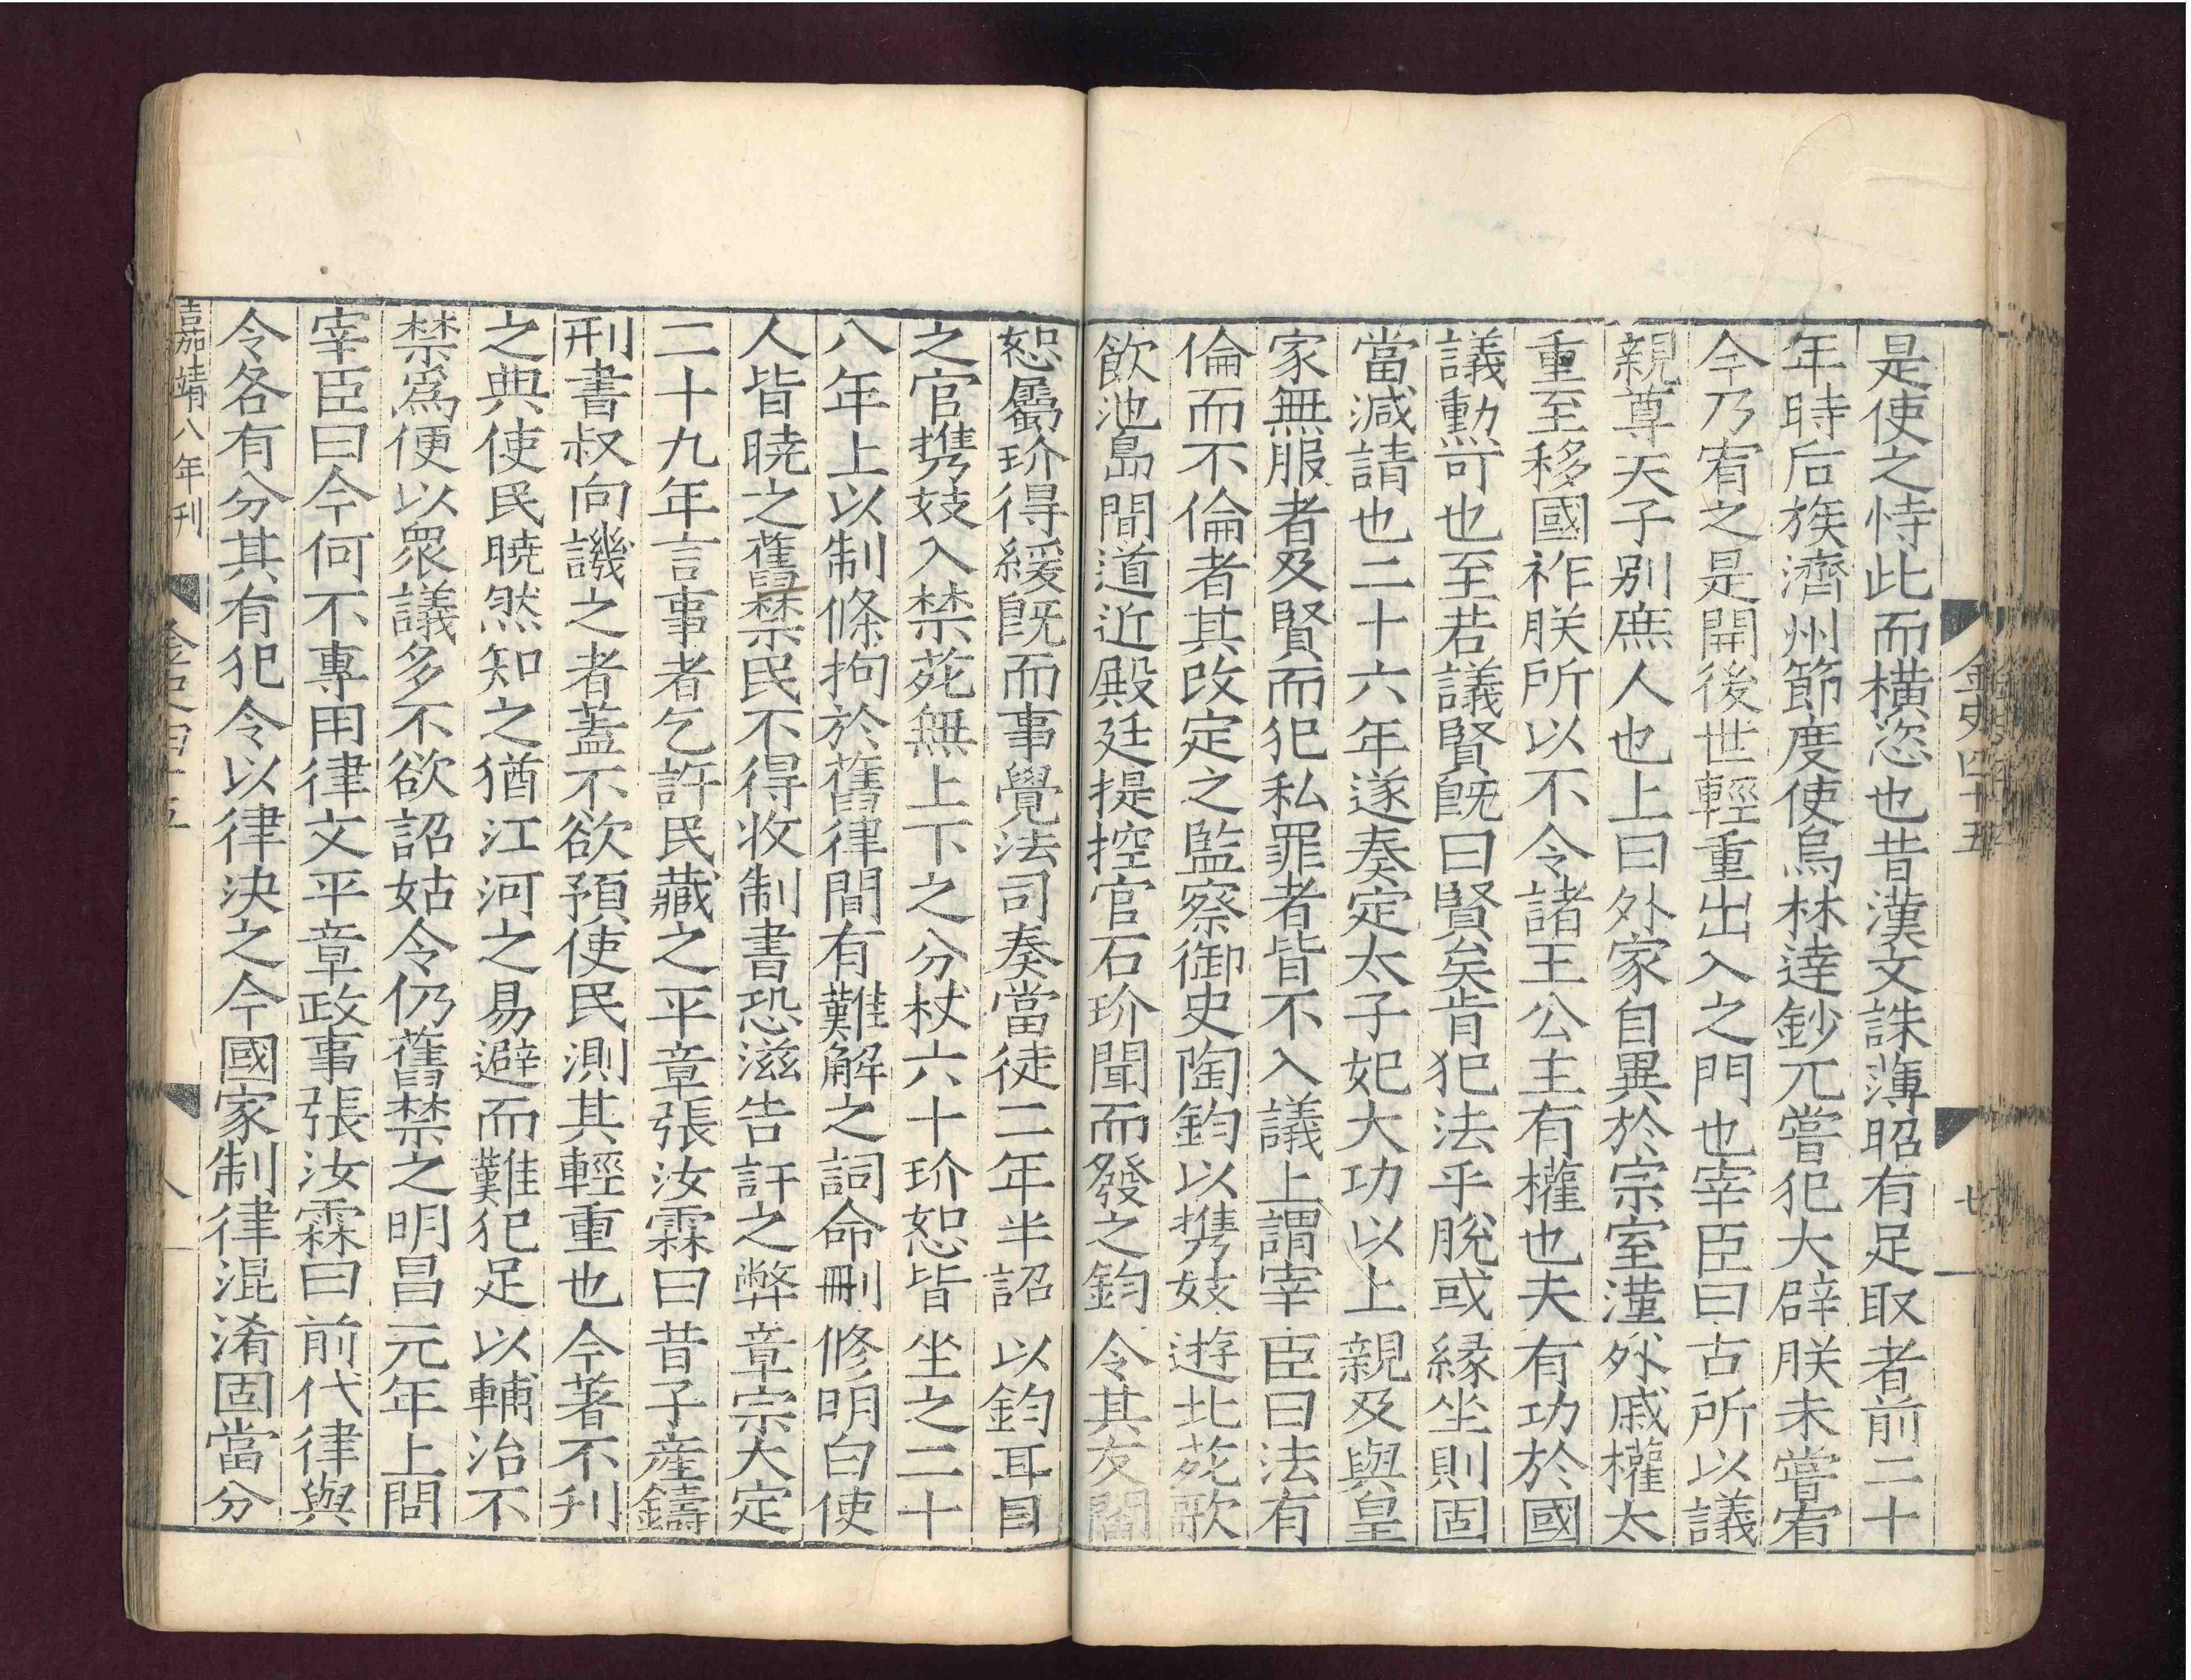 金史四十五
七
是使之恃此而橫恣也昔漢文誅薄昭有足取者前二十
年時后族濟州節度使烏林達鈔兀嘗犯大辟朕未嘗宥
今乃宥之是開後世輕重出入之門也宰臣曰古所以議
親尊天子别庶人也上曰外家自異於宗室漢外戚權太
重至移國祚朕所以不令諸王公主有權也夫有功於國
議勳可也至若議賢既曰賢矣肯犯法乎脫或緣坐則固
當減請也二十六年遂奏定太子妃大功以上親及與皇
家無服者及賢而犯私罪者皆不入議上謂宰臣曰法有
倫而不倫者其改定之監察御史陶鈞以携妓遊北苑歌
飲池島間道近殿廷提控官石玠聞而發之鈞令其友閻
恕屬玠得緩既而事覺法司奏當徒二年半詔以鈞耳目
之官携妓入禁苑無上下之分杖六十玠恕皆坐之二十
八年上以制條拘於舊律間有難解之詞命刪修明白使
人皆曉之舊禁民不得收制書恐滋告訐之弊章宗大定
二十九年言事者乞許民藏之平章張汝霖曰昔子産鑄
刑書叔向譏之者蓋不欲預使民測其輕重也今著不刊
之典使民曉然知之猶江河之易避而難犯足以輔治不
禁爲便以衆議多不欲詔姑令仍舊禁之明昌元年上問
宰臣曰今何不專用律文平章政事張汝霖曰前代律與
令各有分其有犯令以律決之今國家制律混淆固當分
嘉靖八年刊
金史四十五
八